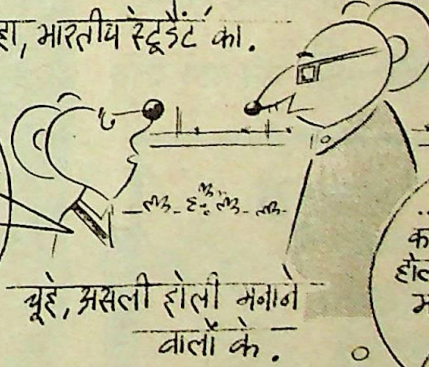 हा, भारतीय स्टूडैंट का.
चूहे, असली होली मनाने
वालों के.